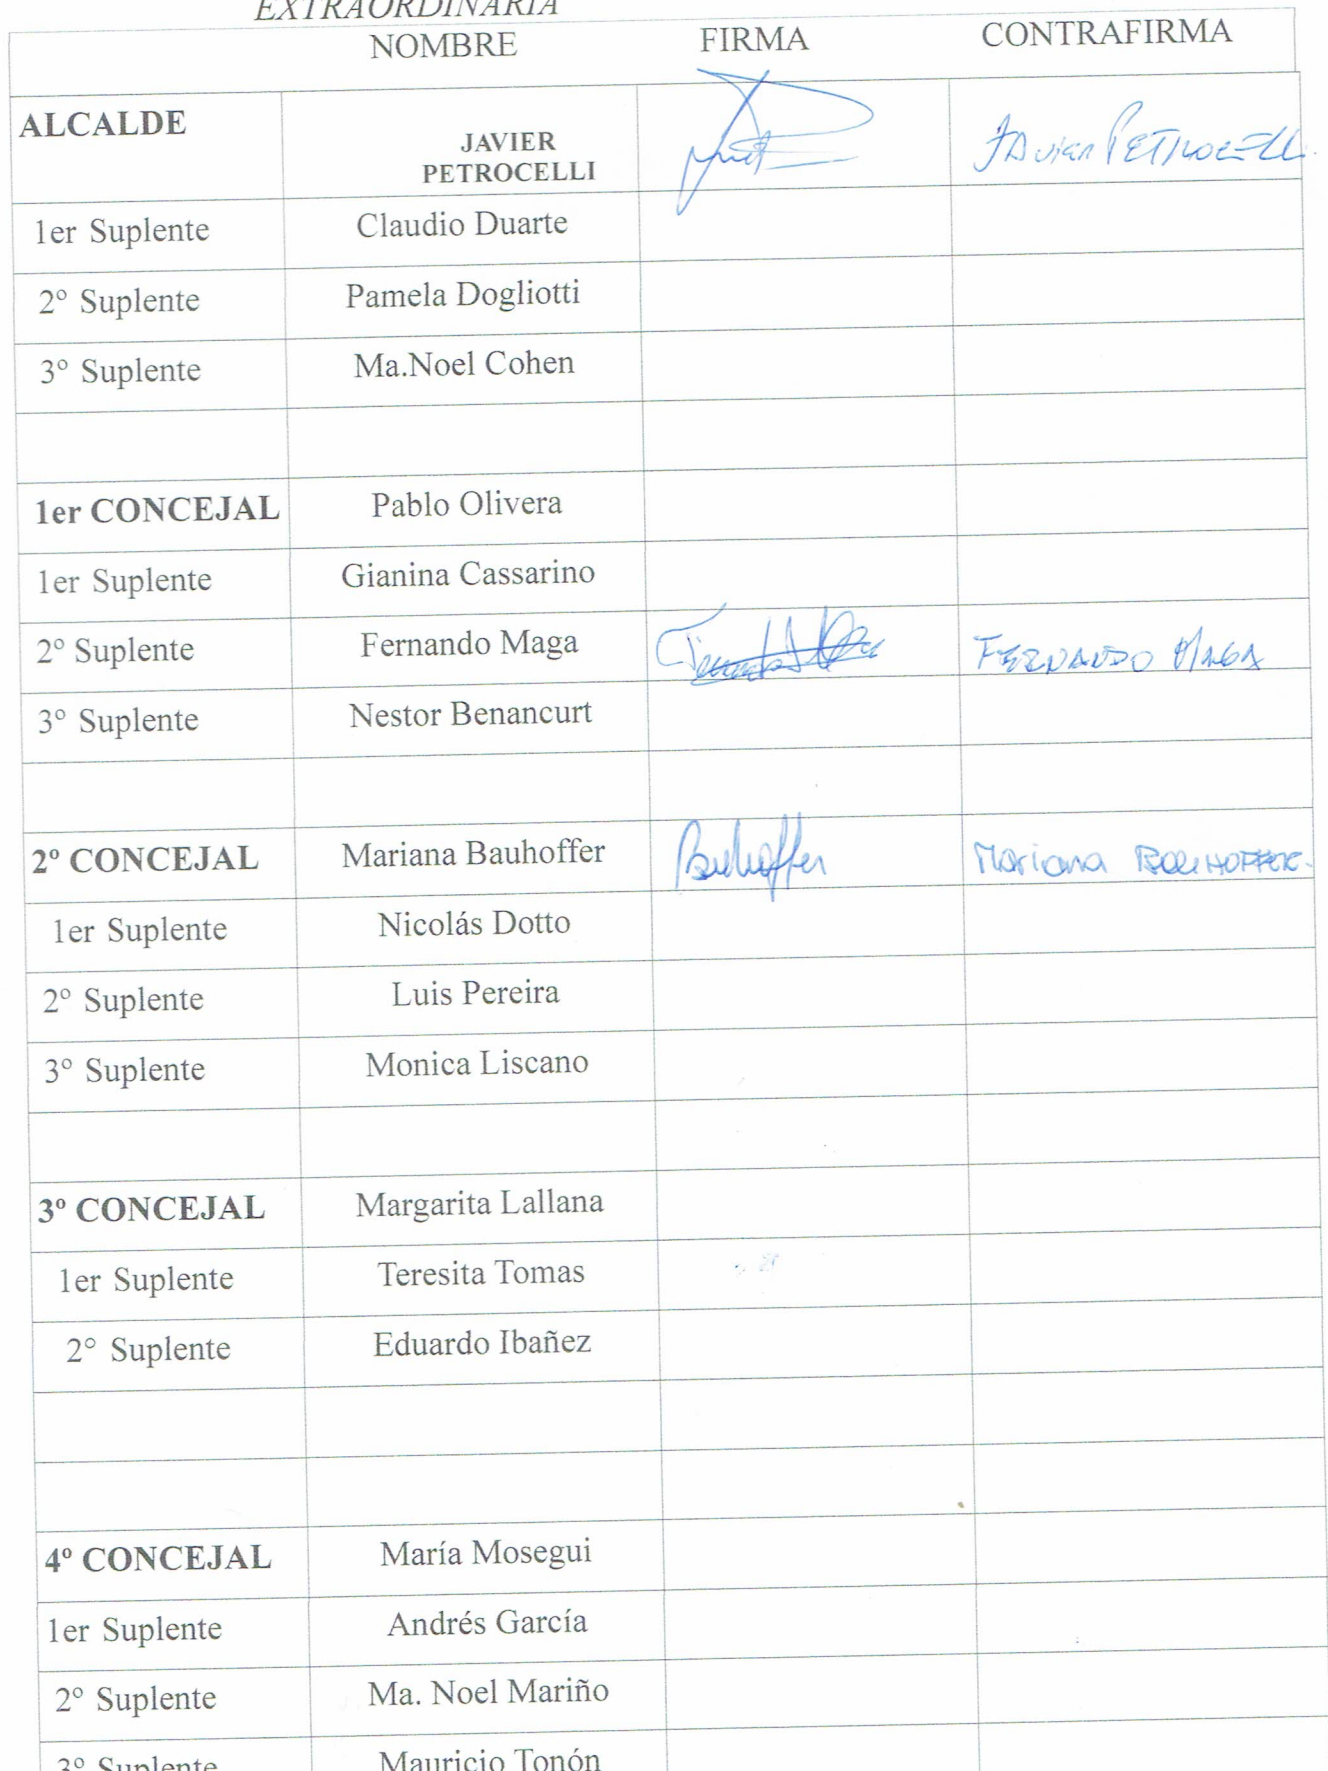 EXTRAORDINARIA
NOMBRE FIRMA CONTRAFIRMA
ALCALDE JAVIER PETROCELLI Javier PETROCELLI
1er Suplente Claudio Duarte
2º Suplente Pamela Dogliotti
3º Suplente Ma.Noel Cohen
1er CONCEJAL Pablo Olivera
1er Suplente Gianina Cassarino
2º Suplente Fernando Maga FERNANDO MAGA
3º Suplente Nestor Benancurt
2º CONCEJAL Mariana Bauhoffer Bauhoffer Mariana BAUHOFFER.
1er Suplente Nicolás Dotto
2º Suplente Luis Pereira
3º Suplente Monica Liscano
3º CONCEJAL Margarita Lallana
1er Suplente Teresita Tomas
2° Suplente Eduardo Ibañez
4º CONCEJAL María Mosegui
1er Suplente Andrés García
2º Suplente Ma. Noel Mariño
3º Suplente Mauricio Tonón